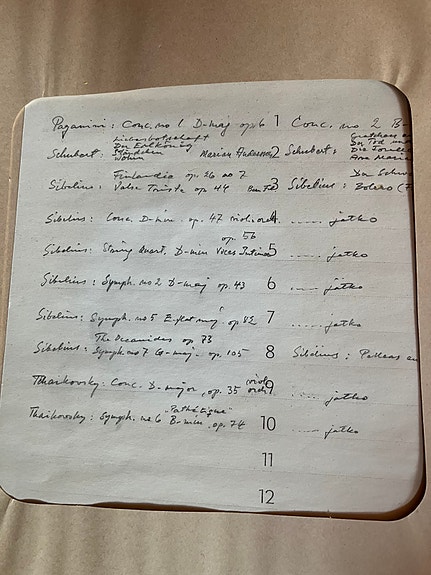 Paganini: Conc. no 1 D-maj op. 6 1 Conc. no 2 B
Liebesbotschaft
Der Erlkönig
Schubert: Ständchen Marian Anderson 2 Schubert:
Wohin
Gretchen
Der Tod und
Die Forelle
Ave Maria
Finlandia op. 26 no 7
Sibelius: Valse Triste op 44 3 Sibelius: Bolero
Der Schw
Sibelius: Conc. D-min. op. 47 viol. ork. 4 ...... jatko
op. 56
Sibelius: String Quart. D-min Voces Intimae 5 ...... jatko
Sibelius: Symph. no 2 D-maj op. 43 6 ...... jatko
Sibelius: Symph. no 5 E-flat maj op. 82 7 ...... jatko
The Oceanides op. 73
Sibelius: Symph. no 7 C-maj op. 105 8 Sibelius: Pelleas
Tchaikovsky: Conc. D-major, op. 35 viol. ork. 9 ...... jatko
"Pathétique"
Tchaikovsky: Symph. no 6 B-min. op. 74 10 ...... jatko
11
12